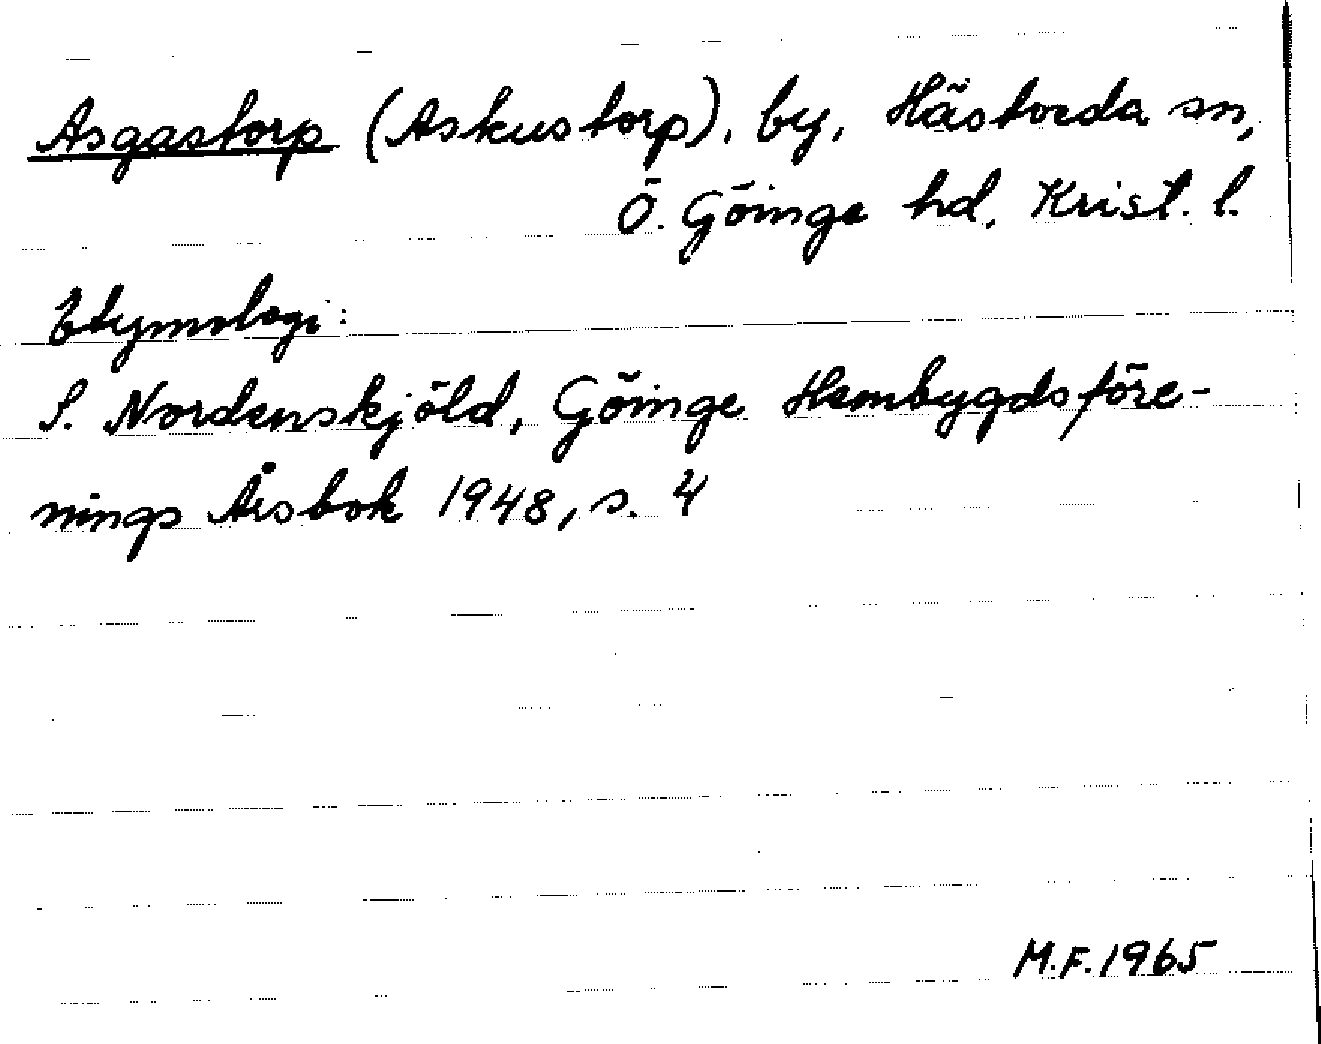 Asgastorp (Askustorp), by, Hästveda sn,
Ö. Göinge hd, Krist. l.
Etymologi:
S. Nordenskjöld, Göinge Hembygdsföre-
nings Årsbok 1948, s. 4
M.F. 1965